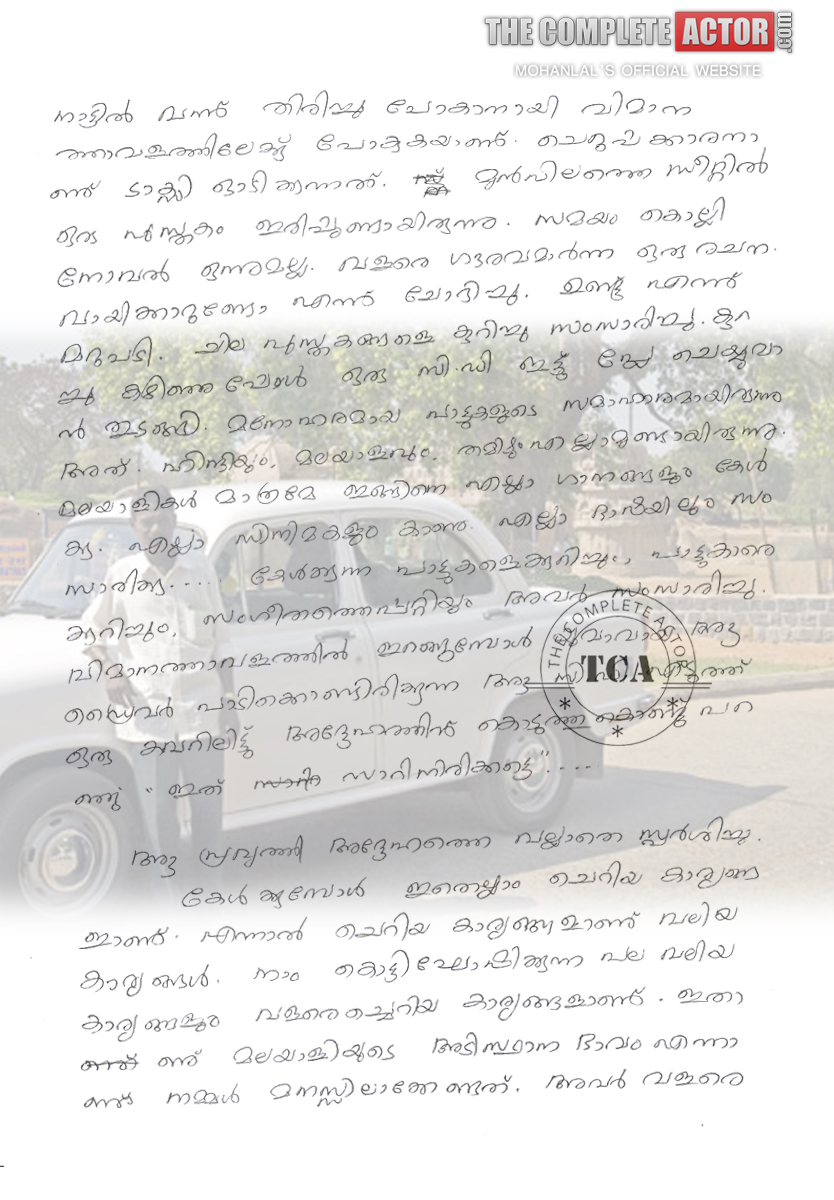 THE COMPLETE ACTOR.com
MOHANLAL'S OFFICIAL WEBSITE
നാട്ടിൽ വന്ന് തിരിച്ചു പോകാനായി വിമാന
ത്താവളത്തിലേക്ക് പോകുകയാണ്. ചെറുപ്പക്കാരനാ
ണ് ടാക്സി ഓടിക്കുന്നത്. മുൻപിലത്തെ സീറ്റിൽ
ഒരു പുസ്തകം ഇരിപ്പുണ്ടായിരുന്നു. സമയം കൊല്ലി
നോവൽ ഒന്നുമല്ല. വളരെ ഗൗരവമാർന്ന ഒരു രചന.
വായിക്കാറുണ്ടോ എന്ന് ചോദിച്ചു. ഉണ്ട് എന്ന്
മറുപടി. ചില പുസ്തകങ്ങളെ കുറിച്ചു സംസാരിച്ചു. കുറ
ച്ചു കഴിഞ്ഞപ്പോൾ ഒരു സി.ഡി ഇട്ട് പ്ലേ ചെയ്യുവാ
ൻ തുടങ്ങി. മനോഹരമായ പാട്ടുകളുടെ സമാഹാരമായിരുന്നു
അത്. ഹിന്ദിയും, മലയാളവും, തമിഴും എല്ലാമുണ്ടായിരുന്നു.
മലയാളികൾ മാത്രമേ ഇങ്ങിനെ എല്ലാ ഗാനങ്ങളും കേൾ
ക്കൂ. എല്ലാ സിനിമകളും കാണൂ. എല്ലാ ഭാഷയിലും സം
സാരിക്കൂ..... കേൾക്കുന്ന പാട്ടുകളെക്കുറിച്ചും, പാട്ടുകാരെ
ക്കുറിച്ചും, സംഗീതത്തെപ്പറ്റിയും അവർ സംസാരിച്ചു.
വിമാനത്താവളത്തിൽ ഇറങ്ങുമ്പോൾ യുവാവായ ആ
ഡ്രൈവർ പാടിക്കൊണ്ടിരിക്കുന്ന ആ സി ഡി എടുത്ത്
ഒരു കവറിലിട്ട് അദ്ദേഹത്തിന് കൊടുത്തു കൊണ്ടു പറ
ഞ്ഞു "ഇത് സാറിനിരിക്കട്ടെ"....
ആ പ്രവൃത്തി അദ്ദേഹത്തെ വല്ലാതെ സ്പർശിച്ചു.
കേൾക്കുമ്പോൾ ഇതെല്ലാം ചെറിയ കാര്യങ്ങ
ളാണ്. എന്നാൽ ചെറിയ കാര്യങ്ങളാണ് വലിയ
കാര്യങ്ങൾ. നാം കൊട്ടിഘോഷിക്കുന്ന പല വലിയ
കാര്യങ്ങളും വളരെച്ചെറിയ കാര്യങ്ങളാണ്. ഇതാ
ണ് മലയാളിയുടെ അടിസ്ഥാന ഭാവം എന്നാ
ണ് നമ്മൾ മനസ്സിലാക്കേണ്ടത്. അവർ വളരെ
THE COMPLETE ACTOR
TCA